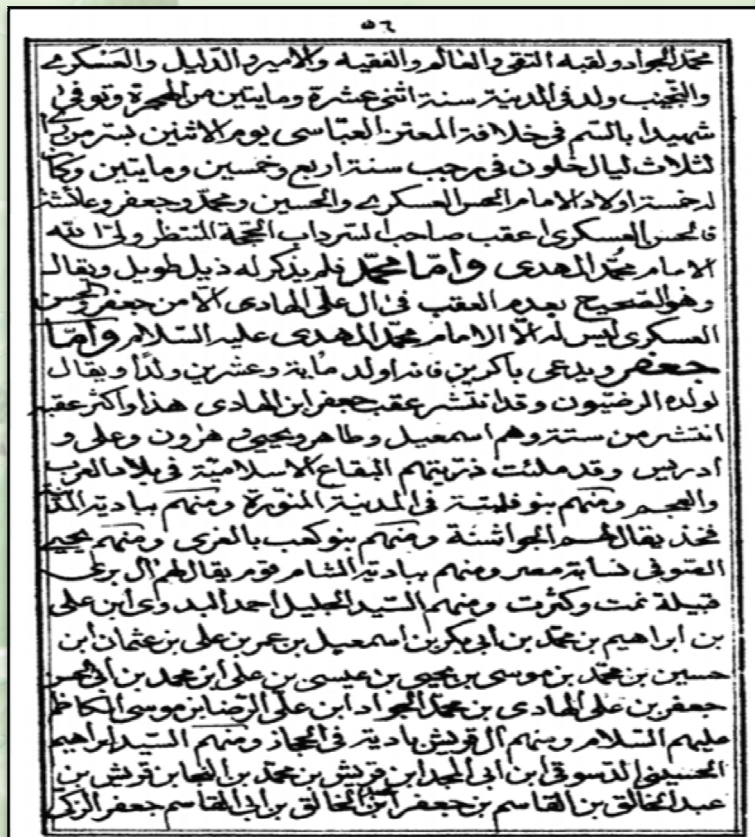 ٥٦
محمد الجواد ولقبه التقى والعالم والفقيه والامير والدليل والعسكرى
والنجيب ولد فى المدينة سنة اثنى عشرة ومايتين من الهجرة وتوفى
شهيدا بالسم فى خلافة المعتز العباسى يوم الاثنين بسر من راى
لثلاث ليال خلون فى رجب سنة اربع وخمسين ومايتين وكان
له خمسة اولاد الامام الحسن العسكرى والحسين ومحمد وجعفر وعائشة
فالحسن العسكرى اعقب صاحب السرداب الحجة المنتظر ولى الله
الامام محمد المهدى واما محمد فلم يذكر له ذيل طويل ويقال
وهو الصحيح بعدم العقب فى ال على الهادى الا من جعفر والحسن
العسكرى ليس له الا الامام محمد المهدى عليه السلام واما
جعفر ويدعى باكرين فانه اولد ماية وعشرين ولدا ويقال
لولده الرضيون وقد انتشر عقب جعفر ابن الهادى هذا واكثر عقبه
انتشر من ستة وهم اسمعيل وطاهر ويحيى وهرون وعلى و
ادريس وقد ملئت ذريتهم البقاع الاسلامية فى بلاد العرب
والعجم ومنهم بنو فليتة فى المدينة المنورة ومنهم ببادية
فخذ يقال لهم الجواشنة ومنهم بنو كهب بالغرى ومنهم يحيى
الصوفى نسابة مصر ومنهم ببادية الشام قوم يقال لهم ال برى
قبيلة نمت وكثرت ومنهم السيد الجليل احمد البدوى ابن على
بن ابراهيم بن محمد بن ابى بكر بن اسمعيل بن عمر بن على بن عثمان ابن
حسين بن محمد بن موسى بن يحيى بن عيسى بن على ابن محمد بن
جعفر بن على الهادى بن محمد الجواد ابن على الرضا بن موسى الكاظم
عليهم السلام ومنهم ال قريش بادية فى الحجاز ومنهم السيد ابراهيم
الحسينى الدسوقى ابن ابى المجد ابن قريش بن محمد بن النجا بن قريش بن
عبد الخالق بن القاسم بن جعفر ابن عبد الخالق بن ابى القاسم جعفر الزكى